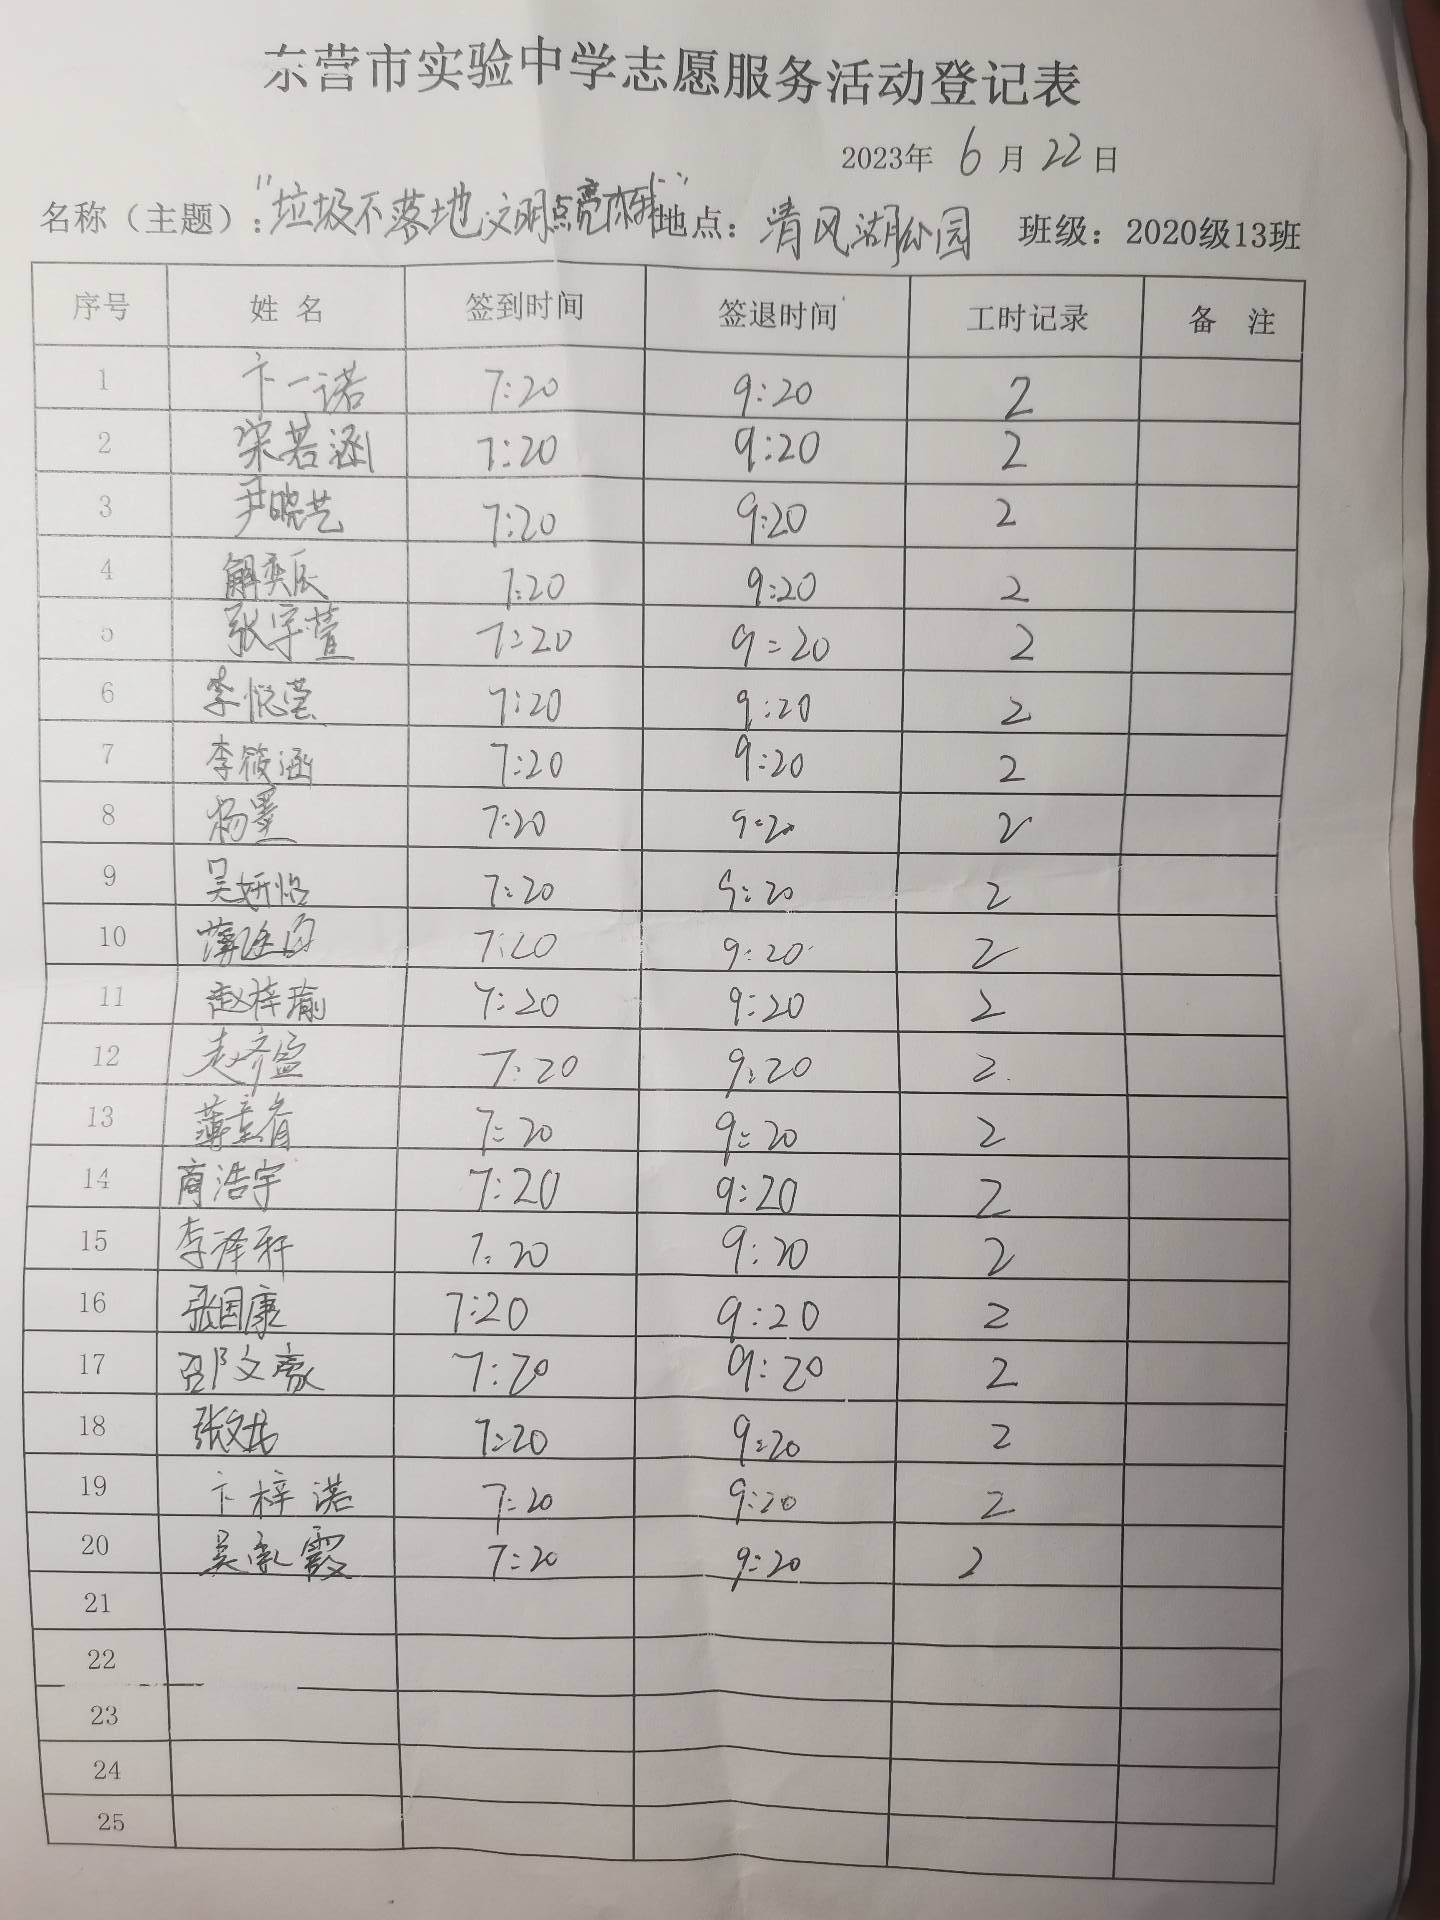 东营市实验中学志愿服务活动登记表
2023年 6 月 22 日
名称（主题）："垃圾不落地 文明点亮 地点：清风湖公园 班级：2020级13班
序号 姓名 签到时间 签退时间 工时记录 备注
1 卞一诺 7:20 9:20 2
2 宋若涵 7:20 9:20 2
3 尹晓艺 7:20 9:20 2
4 解奕辰 7:20 9:20 2
5 张宇萱 7:20 9:20 2
6 李悦莹 7:20 9:20 2
7 李筱涵 7:20 9:20 2
8 杨墨 7:20 9:20 2
9 吴妍怡 7:20 9:20 2
10 7:20 9:20 2
11 赵梓瑜 7:20 9:20 2
12 赵齐盈 7:20 9:20 2
13 7:20 9:20 2
14 商浩宇 7:20 9:20 2
15 李泽轩 7:20 9:20 2
16 张国康 7:20 9:20 2
17 邵文豪 7:20 9:20 2
18 7:20 9:20 2
19 卞梓诺 7:20 9:20 2
20 7:20 9:20 2
21
22
23
24
25